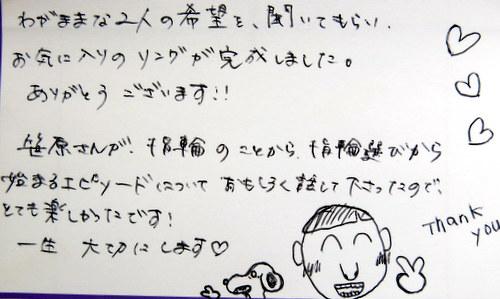 わがままな2人の希望を、聞いてもらい、
お気に入りのリングが完成しました。
ありがとうございます!!
笹原さんが、指輪のことから、指輪選びから
始まるエピソードについておもしろく話して下さったので、
とても楽しかったです!
一生 大切にします♡
Thank
you